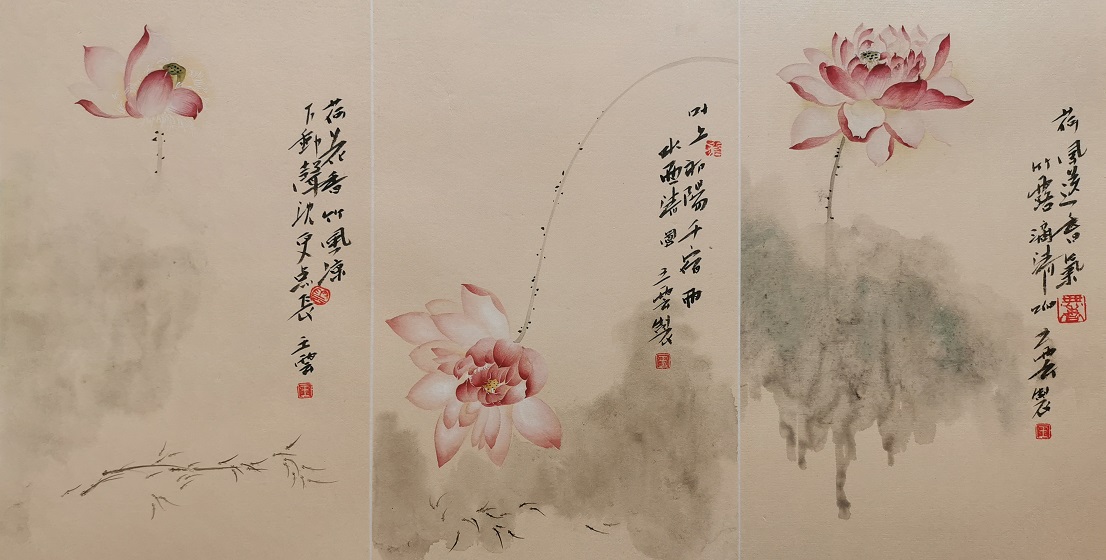 荷花香竹風涼
下郵聲沈更点長 王雲
叶上初陽干宿雨
水面清圓 王雲製
荷風送香氣
竹露滴清响 王雲製